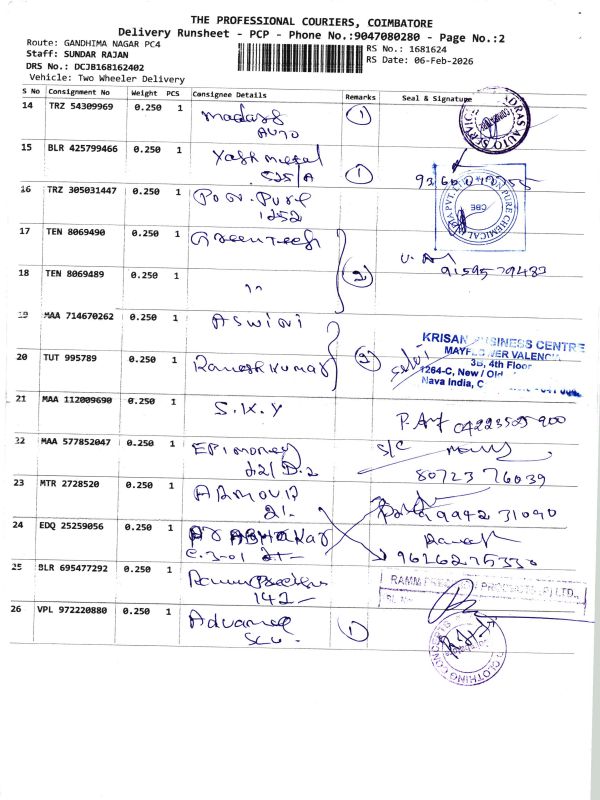 THE PROFESSIONAL COURIERS, COIMBATORE
Delivery Runsheet - PCP - Phone No.:9047080280 - Page No.:2
Route: GANDHIMA NAGAR PC4
RS No.: 1681624
Staff: SUNDAR RAJAN
RS Date: 06-Feb-2026
DRS No.: DCJB168162402
Vehicle: Two Wheeler Delivery
S No Consignment No Weight PCS Consignee Details Remarks Seal & Signature
14 TRZ 54309969 0.250 1 Madras 1
Auto
15 BLR 425799466 0.250 1 Yash metal
525/A 1
16 TRZ 305031447 0.250 1 Pon. Pure
1252
17 TEN 8069490 0.250 1 Green Tech
9159579483
18 TEN 8069489 0.250 1 " 2
19 MAA 714670262 0.250 1 Aswini
KRISAN BUSINESS CENTRE
MAYFLOWER VALENCIA
20 TUT 995789 0.250 1 Ramesh Kumar 2 Selvi
3B, 4th Floor
1264-C, New / Old
Nava India, C
21 MAA 112009690 0.250 1 S.K.Y
04223525900
22 MAA 577852047 0.250 1 EPimoney S/C
J2/D.2 80723 76039
23 MTR 2728520 0.250 1 Armour
21- 99942 31090
24 EDQ 25259056 0.250 1 Prabhakar
C.3-01 2+- 96262 75330
25 BLR 695477292 0.250 1
142-
26 VPL 972220880 0.250 1 Advanced 1
CLOTHING CONCEPTS